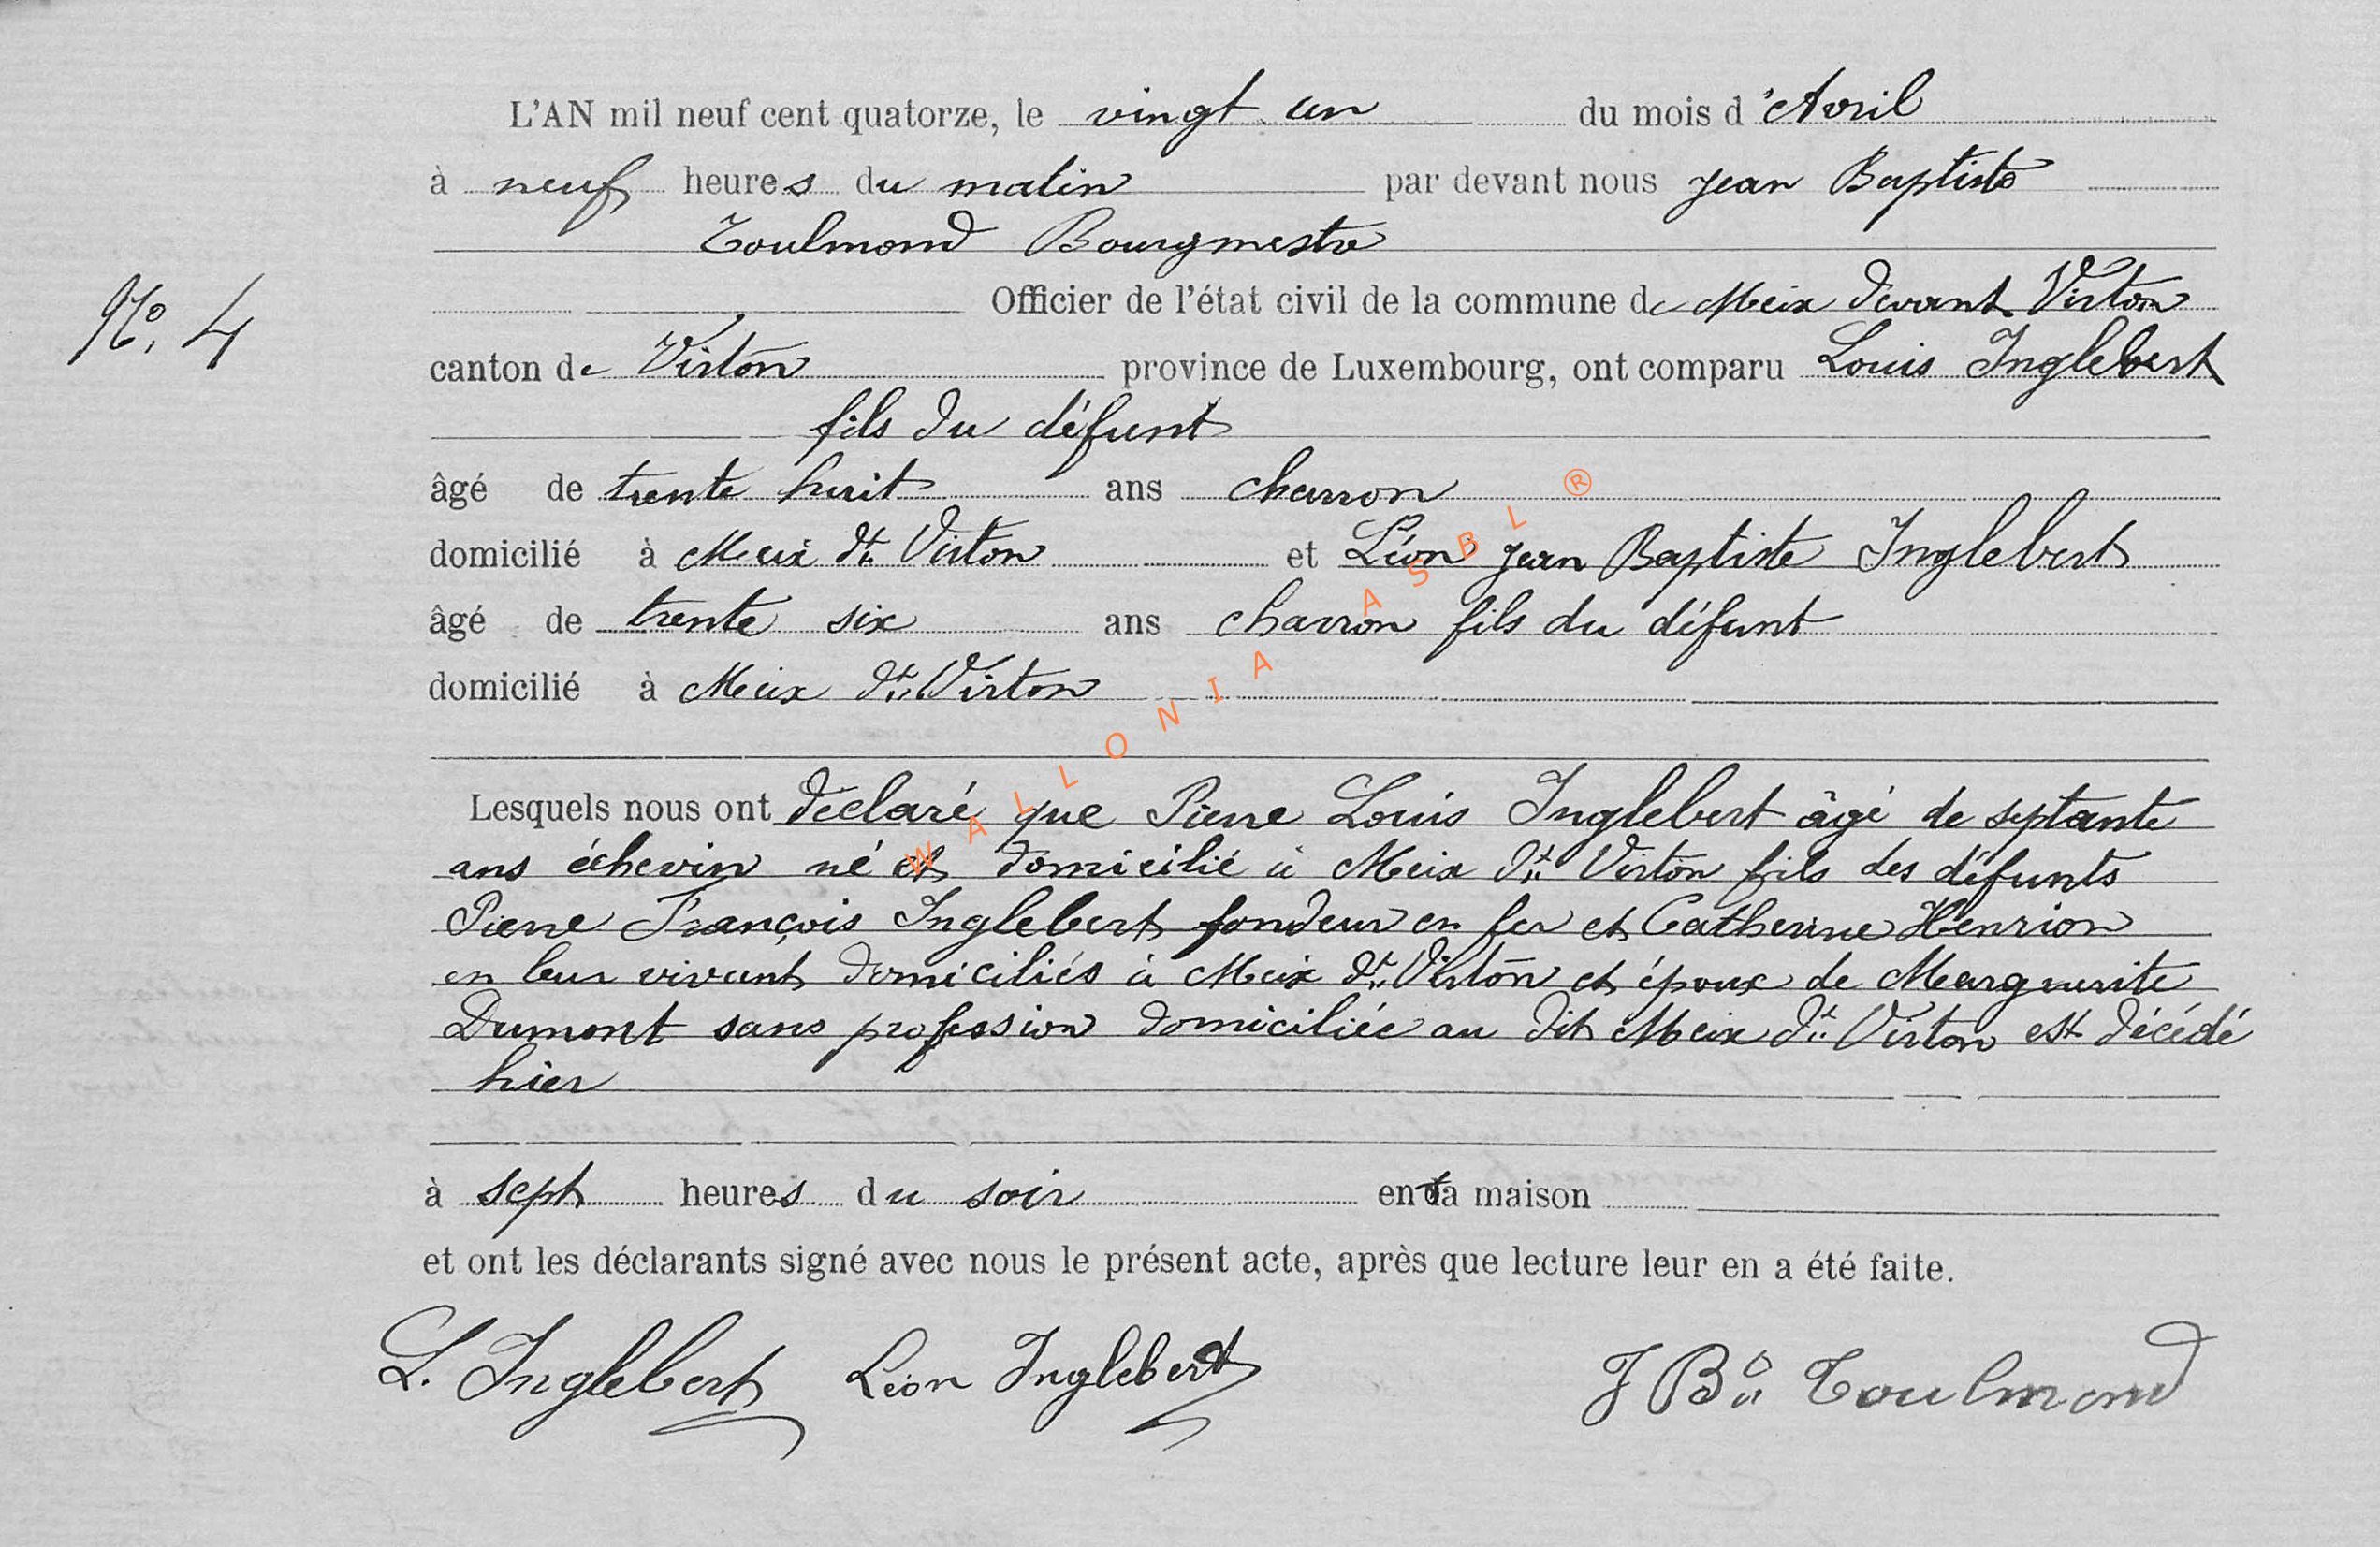 L'AN mil neuf cent quatorze, le vingt un du mois d'Avril
à neuf heures du matin par devant nous Jean Baptiste
Toulmond Bourgmestre
Officier de l'état civil de la commune de Meix devant Virton
No. 4
canton de Virton province de Luxembourg, ont comparu Louis Inglebert
fils du défunt
âgé de trente huit ans charron
domicilié à Meix dt Virton et Léon Jean Baptiste Inglebert
âgé de trente six ans charron fils du défunt
domicilié à Meix dt Virton
WALLONIA ASBL ®
Lesquels nous ont déclaré que Pierre Louis Inglebert âgé de septante
ans échevin né et domicilié à Meix dt Virton fils des défunts
Pierre François Inglebert fondeur en fer et Catherine Henrion
en leur vivant domiciliés à Meix dt Virton et époux de Marguerite
Dumont sans profession domiciliée au dit Meix dt Virton est décédé
hier
à sept heures du soir en sa maison
et ont les déclarants signé avec nous le présent acte, après que lecture leur en a été faite.
L. Inglebert Léon Inglebert J Bte Toulmond